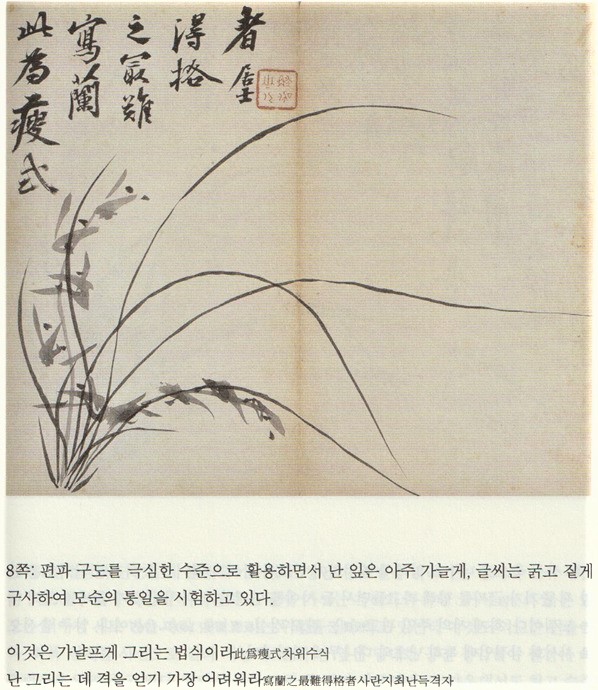 此為瘦式
寫蘭
之冣難
淂格
者 居士
8쪽: 편파 구도를 극심한 수준으로 활용하면서 난 잎은 아주 가늘게, 글씨는 굵고 짙게
구사하여 모순의 통일을 시험하고 있다.
이것은 가냘프게 그리는 법식이라此爲瘦式차위수식
난 그리는 데 격을 얻기 가장 어려워라寫蘭之最難得格者사란지최난득격자